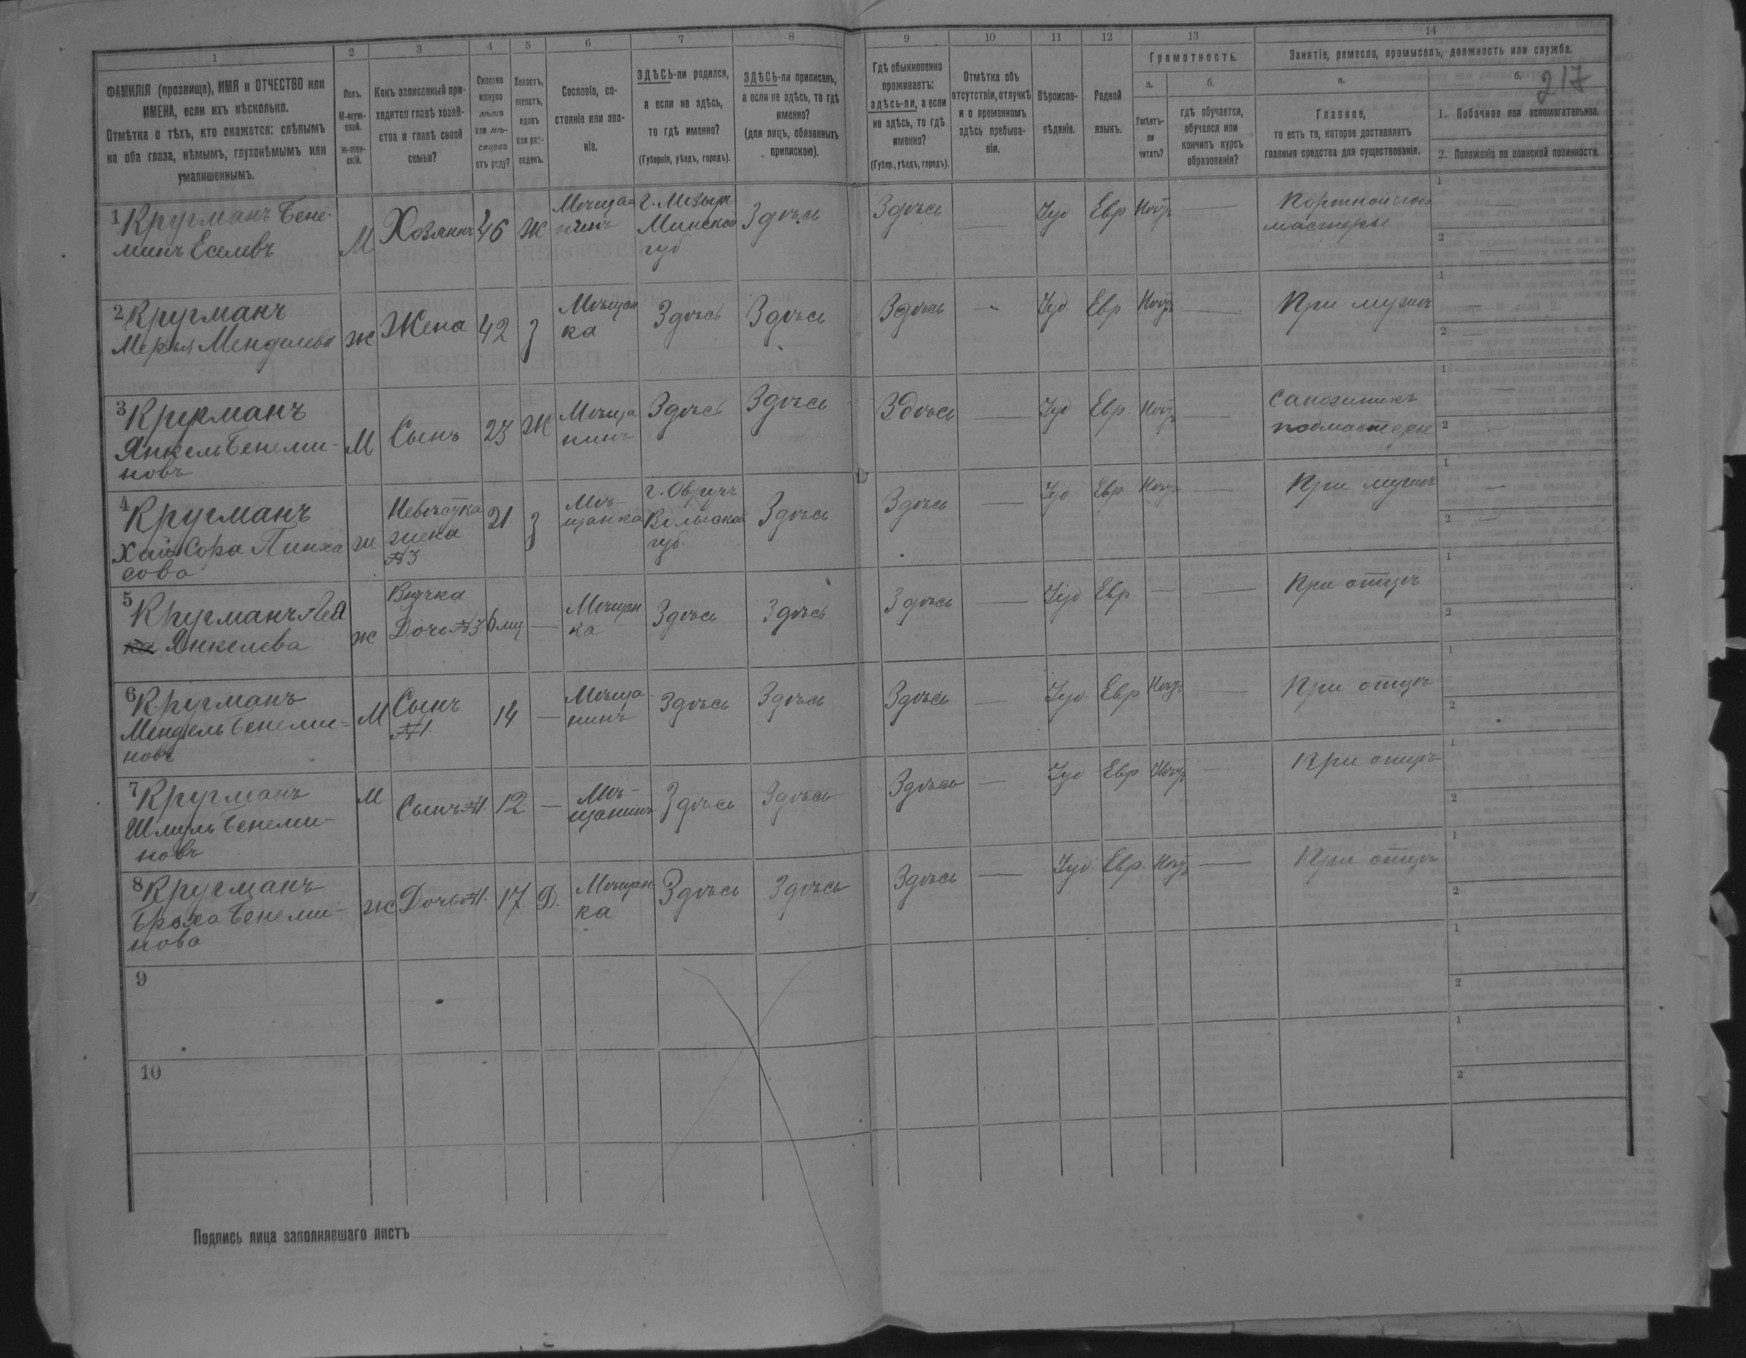 1 2 3 4 5 6 7 8 9 10 11 12 13 14
217
ФАМИЛІЯ (прозвище), ИМЯ и ОТЧЕСТВО или
ИМЕНА, если ихъ нѣсколько.
Отмѣтка о тѣхъ, кто окажется: слѣпымъ
на оба глаза, нѣмымъ, глухонѣмымъ или
умалишеннымъ.
Полъ.
М-муж-
ской.
ж-жен-
скій.
Какъ записанный при-
ходится главѣ хозяй-
ства и главѣ своей
семьи?
Сколько
минуло
лѣтъ
или мѣ-
сяцевъ
отъ роду?
Холостъ,
женатъ,
вдовъ
или раз-
веденъ.
Сословіе, со-
стояніе или зва-
ніе.
ЗДѢСЬ-ли родился,
а если не здѣсь,
то гдѣ именно?
(Губернія, уѣздъ, городъ).
ЗДѢСЬ-ли приписанъ,
а если не здѣсь, то гдѣ
именно?
(для лицъ, обязанныхъ
припискою).
Гдѣ обыкновенно
проживаетъ:
здѣсь-ли, а если
не здѣсь, то гдѣ
именно?
(Губер., уѣздъ, городъ).
Отмѣтка объ
отсутствіи, отлучкѣ
и о временномъ
здѣсь пребыва-
ніи.
Вѣроиспо-
вѣданіе.
Родной
языкъ.
Грамотность.
а.
Умѣетъ-
ли
читать?
б.
гдѣ обучается,
обучался или
кончилъ курсъ
образованія?
Занятіе, ремесло, промыселъ, должность или служба.
а.
Главное,
то есть то, которое доставляетъ
главныя средства для существованія.
б.
1. Побочное или вспомогательное.
2. Положеніе по воинской повинности.
1 Кругманъ Бене-
минъ Еселевъ
М
Хозяинъ
46
Ж
Мѣща
нинъ
г. Мозырь
Минской
губ
Здѣсь
Здѣсь
—
Іуд
Евр
—
мастеръ
1 —
2 —
2 Кругманъ
Менделева
ж
Жена
42
З
Мѣщан
ка
Здѣсь
Здѣсь
Здѣсь
-
Іуд
Евр
—
При мужѣ
1 —
2 —
3 Кругманъ
Янкель Бенеми-
новъ
М
Сынъ
23
Ж
Мѣща
нинъ
Здѣсь
Здѣсь
Здѣсь
—
Іуд
Евр
—
Сапожникъ
подмастерье
1 —
2 —
4 Кругманъ
Хая Сора Пинха
сова
ж
Невѣстка
жена
№3
21
З
Мѣ-
щанка
г. Овручъ
Волынской
губ
Здѣсь
Здѣсь
—
Іуд
Евр
—
При мужѣ
1 —
2 —
5 Кругманъ Лея
Янкелева
ж
Внучка
Дочь №3
6 мц
—
Мѣщан
ка
Здѣсь
Здѣсь
Здѣсь
—
Іуд
Евр
—
—
При отцѣ
1
2
6 Кругманъ
Мендель Бенеми=
новъ
М
Сынъ
№1
14
—
Мѣща
нинъ
Здѣсь
Здѣсь
Здѣсь
—
Іуд
Евр
—
При отцѣ
1
2
7 Кругманъ
Шмуль Бенеми-
новъ
М
Сынъ №1.
12
—
Мѣ-
щанинъ
Здѣсь
Здѣсь
Здѣсь
—
Іуд
Евр
—
При отцѣ
1
2
8 Кругманъ
Броха Бенеми-
нова
ж
Дочь №1.
17
Д.
Мѣщан
ка
Здѣсь
Здѣсь
Здѣсь
—
Іуд
Евр.
—
При отцѣ
1
2
9
1
2
10
1
2
Подпись лица заполнявшаго листъ